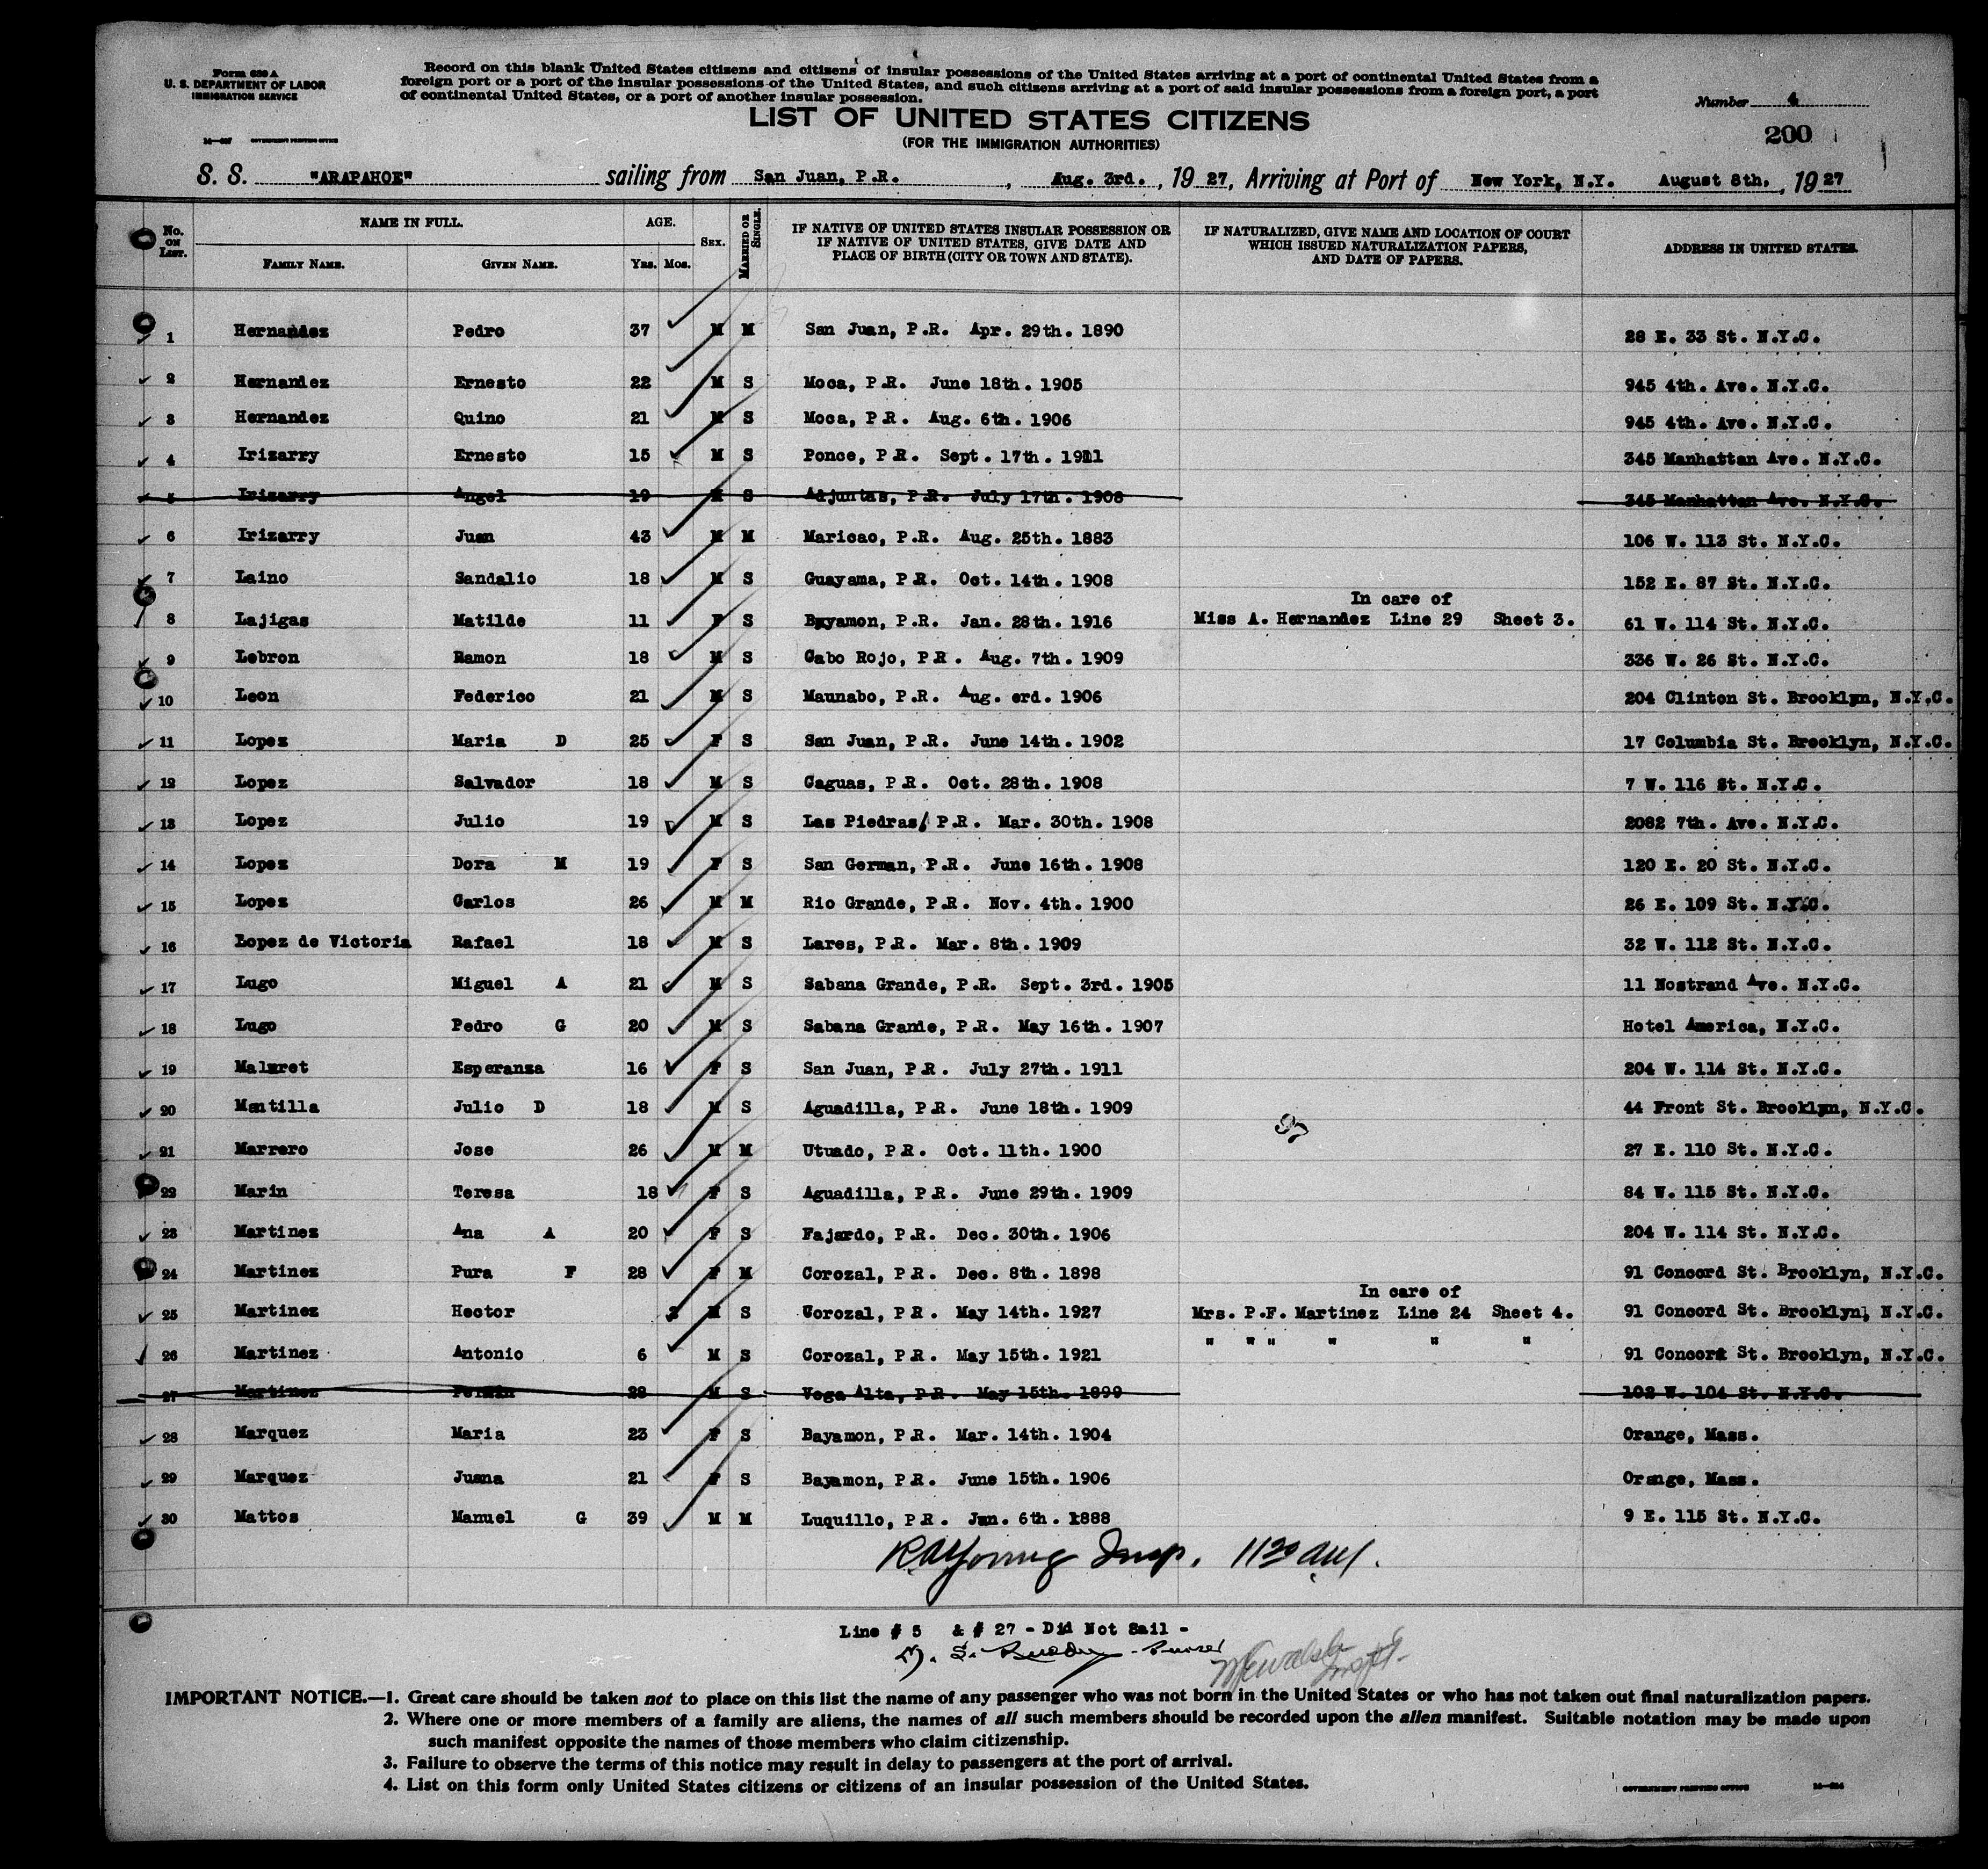 Form 630 A
U. S. DEPARTMENT OF LABOR
IMMIGRATION SERVICE
Record on this blank United States citizens and citizens of insular possessions of the United States arriving at a port of continental United States from a
foreign port or a port of the insular possessions of the United States, and such citizens arriving at a port of said insular possessions from a foreign port, a port
of continental United States, or a port of another insular possession.
Number 4
LIST OF UNITED STATES CITIZENS
(FOR THE IMMIGRATION AUTHORITIES)
200
GOVERNMENT PRINTING OFFICE
S. S. "ARAPAHOE" sailing from San Juan, P.R. , Aug. 3rd. , 19 27, Arriving at Port of New York, N.Y. August 8th. , 19 27
No. ON LIST. NAME IN FULL. FAMILY NAME. GIVEN NAME. AGE. YRS. MOS. SEX. MARRIED OR SINGLE. IF NATIVE OF UNITED STATES INSULAR POSSESSION OR IF NATIVE OF UNITED STATES, GIVE DATE AND PLACE OF BIRTH (CITY OR TOWN AND STATE). IF NATURALIZED, GIVE NAME AND LOCATION OF COURT WHICH ISSUED NATURALIZATION PAPERS, AND DATE OF PAPERS. ADDRESS IN UNITED STATES.
1 Hernandez Pedro 37 M M San Juan, P.R. Apr. 29th. 1890 28 E. 33 St. N.Y.C.
2 Hernandez Ernesto 22 M S Moca, P.R. June 18th. 1905 945 4th. Ave. N.Y.C.
3 Hernandez Quino 21 M S Moca, P.R. Aug. 6th. 1906 945 4th. Ave. N.Y.C.
4 Irizarry Ernesto 15 M S Ponce, P.R. Sept. 17th. 1911 345 Manhattan Ave. N.Y.C.
5 Irizarry Angel 19 M S Adjuntas, P.R. July 17th. 1908 345 Manhattan Ave. N.Y.C.
6 Irizarry Juan 43 M M Maricao, P.R. Aug. 25th. 1883 106 W. 113 St. N.Y.C.
7 Laino Sandalio 18 M S Guayama, P.R. Oct. 14th. 1908 152 E. 87 St. N.Y.C.
In care of
8 Lajigas Matilde 11 F S Bayamon, P.R. Jan. 28th. 1916 Miss A. Hernandez Line 29 Sheet 3. 61 W. 114 St. N.Y.C.
9 Lebron Ramon 18 M S Cabo Rojo, P.R. Aug. 7th. 1909 336 W. 26 St. N.Y.C.
10 Leon Federico 21 M S Maunabo, P.R. Aug. erd. 1906 204 Clinton St. Brooklyn, N.Y.C.
11 Lopez Maria D 25 F S San Juan, P.R. June 14th. 1902 17 Columbia St. Brooklyn, N.Y.C.
12 Lopez Salvador 18 M S Caguas, P.R. Oct. 28th. 1908 7 W. 116 St. N.Y.C.
13 Lopez Julio 19 M S Las Piedras, P.R. Mar. 30th. 1908 2082 7th. Ave. N.Y.C.
14 Lopez Dora M 19 F S San German, P.R. June 16th. 1908 120 E. 20 St. N.Y.C.
15 Lopez Carlos 26 M M Rio Grande, P.R. Nov. 4th. 1900 26 E. 109 St. N.Y.C.
16 Lopez de Victoria Rafael 18 M S Lares, P.R. Mar. 8th. 1909 32 W. 112 St. N.Y.C.
17 Lugo Miguel A 21 M S Sabana Grande, P.R. Sept. 3rd. 1905 11 Nostrand Ave. N.Y.C.
18 Lugo Pedro G 20 M S Sabana Grande, P.R. May 16th. 1907 Hotel America, N.Y.C.
19 Malaret Esperanza 16 F S San Juan, P.R. July 27th. 1911 204 W. 114 St. N.Y.C.
20 Mantilla Julio D 18 M S Aguadilla, P.R. June 18th. 1909 44 Front St. Brooklyn, N.Y.C.
97
21 Marrero Jose 26 M M Utuado, P.R. Oct. 11th. 1900 27 E. 110 St. N.Y.C.
22 Marin Teresa 18 F S Aguadilla, P.R. June 29th. 1909 84 W. 115 St. N.Y.C.
23 Martinez Ana A 20 F S Fajardo, P.R. Dec. 30th. 1906 204 W. 114 St. N.Y.C.
24 Martinez Pura F 28 F M Corozal, P.R. Dec. 8th. 1898 91 Concord St. Brooklyn, N.Y.C.
In care of
25 Martinez Hector M S Corozal, P.R. May 14th. 1927 Mrs. P.F. Martinez Line 24 Sheet 4. 91 Concord St. Brooklyn, N.Y.C.
26 Martinez Antonio 6 M S Corozal, P.R. May 15th. 1921 " " " " " " 91 Concord St. Brooklyn, N.Y.C.
27 Martinez Fermin 28 M S Vega Alta, P.R. May 15th. 1899 102 W. 104 St. N.Y.C.
28 Marquez Maria 23 F S Bayamon, P.R. Mar. 14th. 1904 Orange, Mass.
29 Marquez Juana 21 F S Bayamon, P.R. June 15th. 1906 Orange, Mass.
30 Mattos Manuel G 39 M M Luquillo, P.R. Jan. 6th. 1888 9 E. 115 St. N.Y.C.
Young Insp. 11 30 AM.
Line # 5 & # 27 - Did Not Sail -
Purser
IMPORTANT NOTICE.—1. Great care should be taken not to place on this list the name of any passenger who was not born in the United States or who has not taken out final naturalization papers.
2. Where one or more members of a family are aliens, the names of all such members should be recorded upon the alien manifest. Suitable notation may be made upon
such manifest opposite the names of those members who claim citizenship.
3. Failure to observe the terms of this notice may result in delay to passengers at the port of arrival.
4. List on this form only United States citizens or citizens of an insular possession of the United States.
GOVERNMENT PRINTING OFFICE